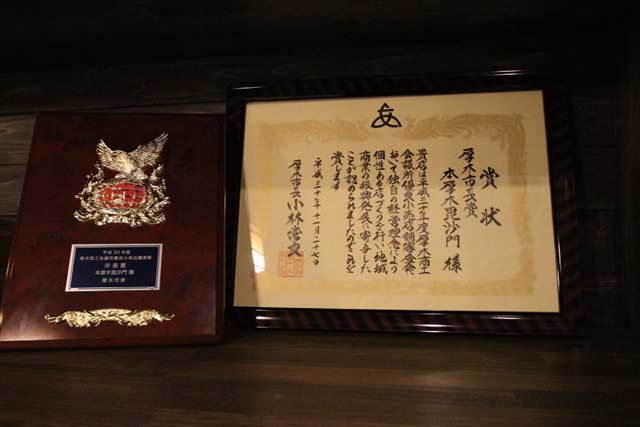 平成30年度
厚木商工会議所優良小売店舗表彰
市長賞
本厚木毘沙門 様
厚木市長
賞状
厚木市長賞
本厚木毘沙門 様
貴店は平成三十年度厚木商工
会議所優良小売店舗審査会に
おいて独自の経営理念により
個性ある店づくりを行い地域
商業の振興発展に寄与した
ことが認められましたのでこれを
賞します
平成三十年十一月二十七日
厚木市長 小林常良